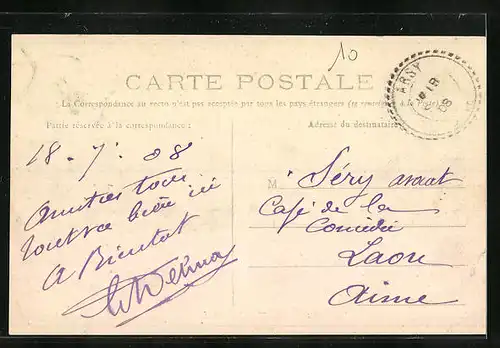 10
CARTE POSTALE
La Correspondance au recto n'est pas acceptée par tous les pays étrangers (se renseigner à la Poste)
Partie réservée à la correspondance :
Adresse du destinataire
ARSY
18
08
18 . 7 . 08
Amitiés tous
tout va bien ici
A Bientot
M. Séry avocat
Café de la
Comédie
Laon
Aisne